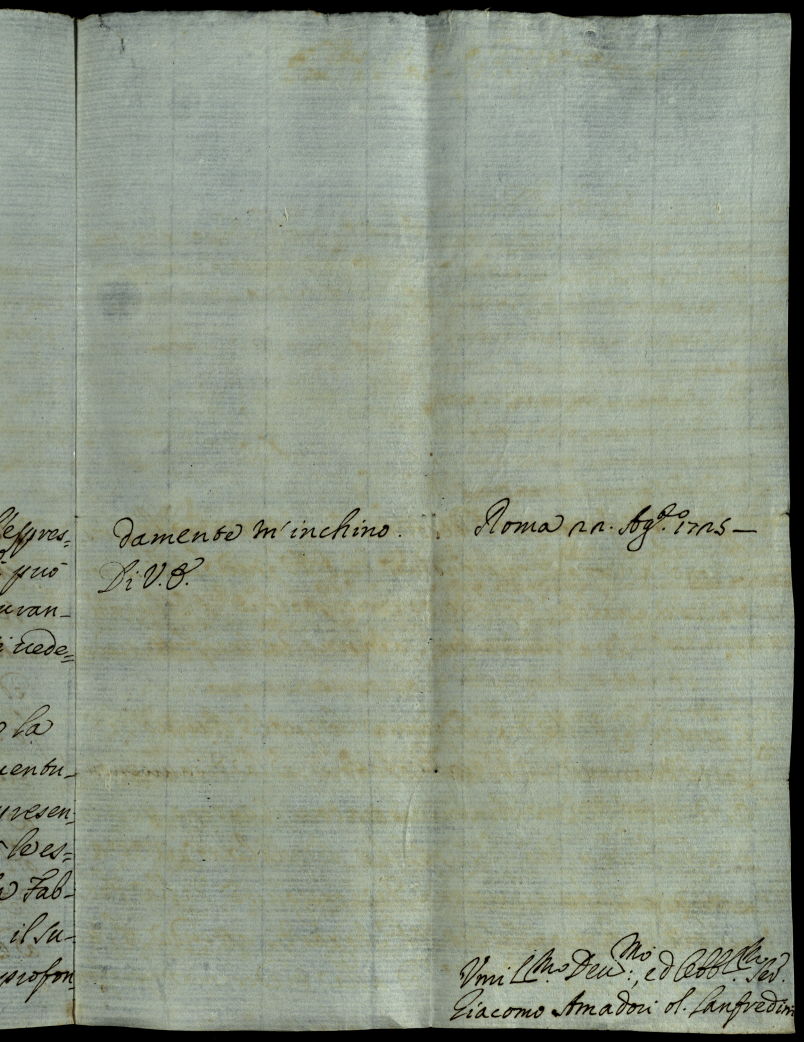 l'espres=
può
uran-
i vede=
la
uentu-
presen-
le es=
Fab-
il su-
profon
damente m'inchino. Roma 22. Ag.sto 1725 -
Di V. S.
Vmi l.mo Deu.mo, ed obbl.mo Ser.
Giacomo Amadori ol. Lanfredini